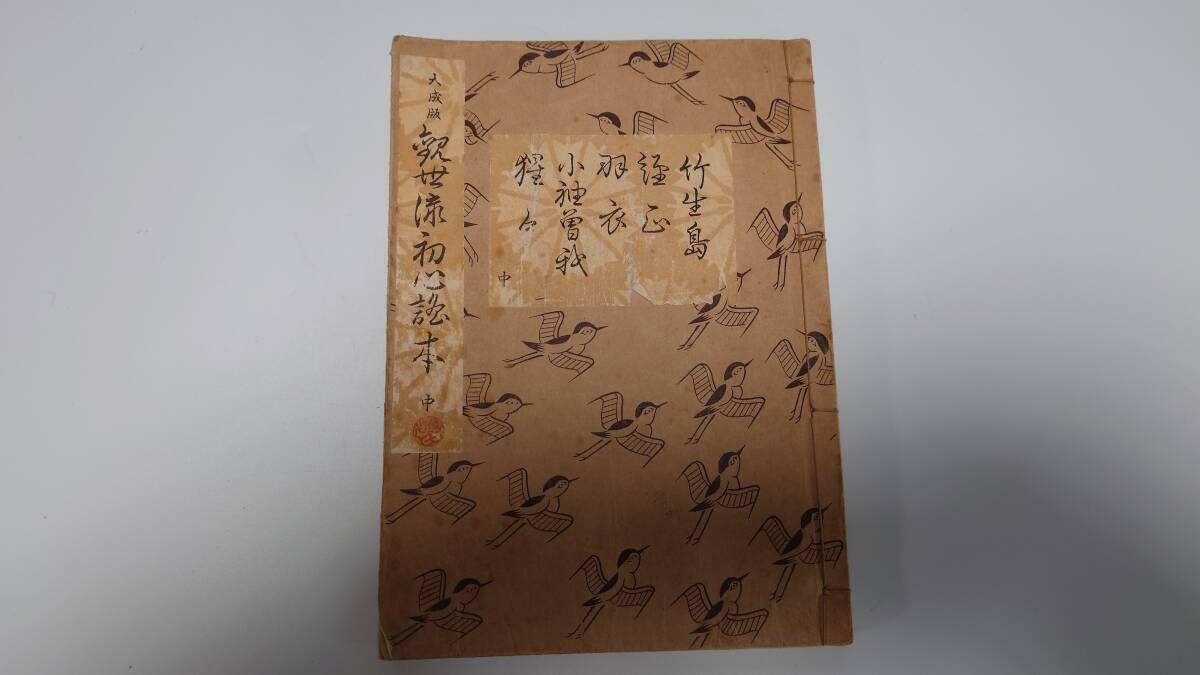 大成版
観世流初心謡本 中
竹生島
経正
羽衣
小袖曽我
猩々
中